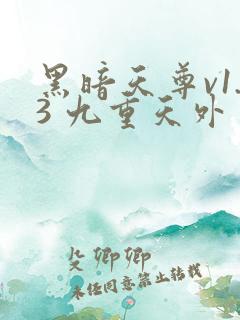 黑暗天尊v1.
3 九重天外
殳卿卿
未经同意禁止转载